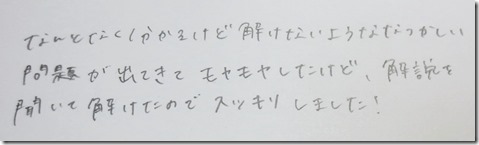 なんとなく分かるけど解けないようななつかしい
問題が出てきてモヤモヤしたけど、解説を
聞いて解けたのでスッキリしました!